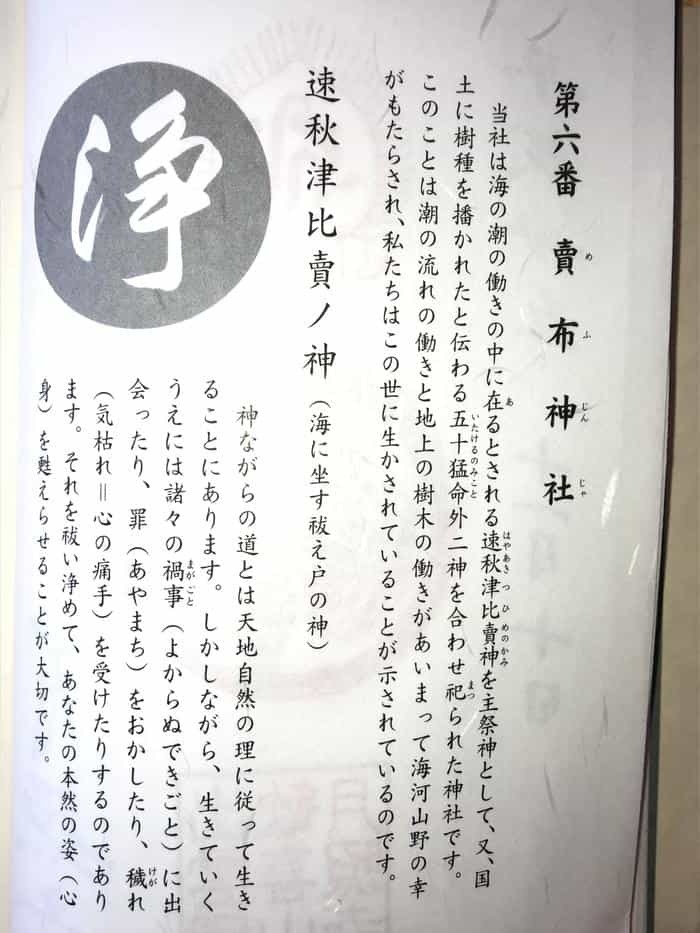 第六番 賣布神社
めふじんじゃ
当社は海の潮の働きの中に在るとされる速秋津比賣神を主祭神として、又、国
あ はやあきつひめのかみ
土に樹種を播かれたと伝わる五十猛命外二神を合わせ祀られた神社です。
いたけるのみこと まつ
このことは潮の流れの働きと地上の樹木の働きがあいまって海河山野の幸
がもたらされ、私たちはこの世に生かされていることが示されているのです。
速秋津比賣ノ神(海に坐す祓え戸の神)
浄
神ながらの道とは天地自然の理に従って生き
ることにあります。しかしながら、生きていく
うえには諸々の禍事(よからぬできごと)に出
まがごと
会ったり、罪(あやまち)をおかしたり、穢れ
けが
(気枯れ=心の痛手)を受けたりするのであり
ます。それを祓い浄めて、あなたの本然の姿(心
身)を甦えらせることが大切です。